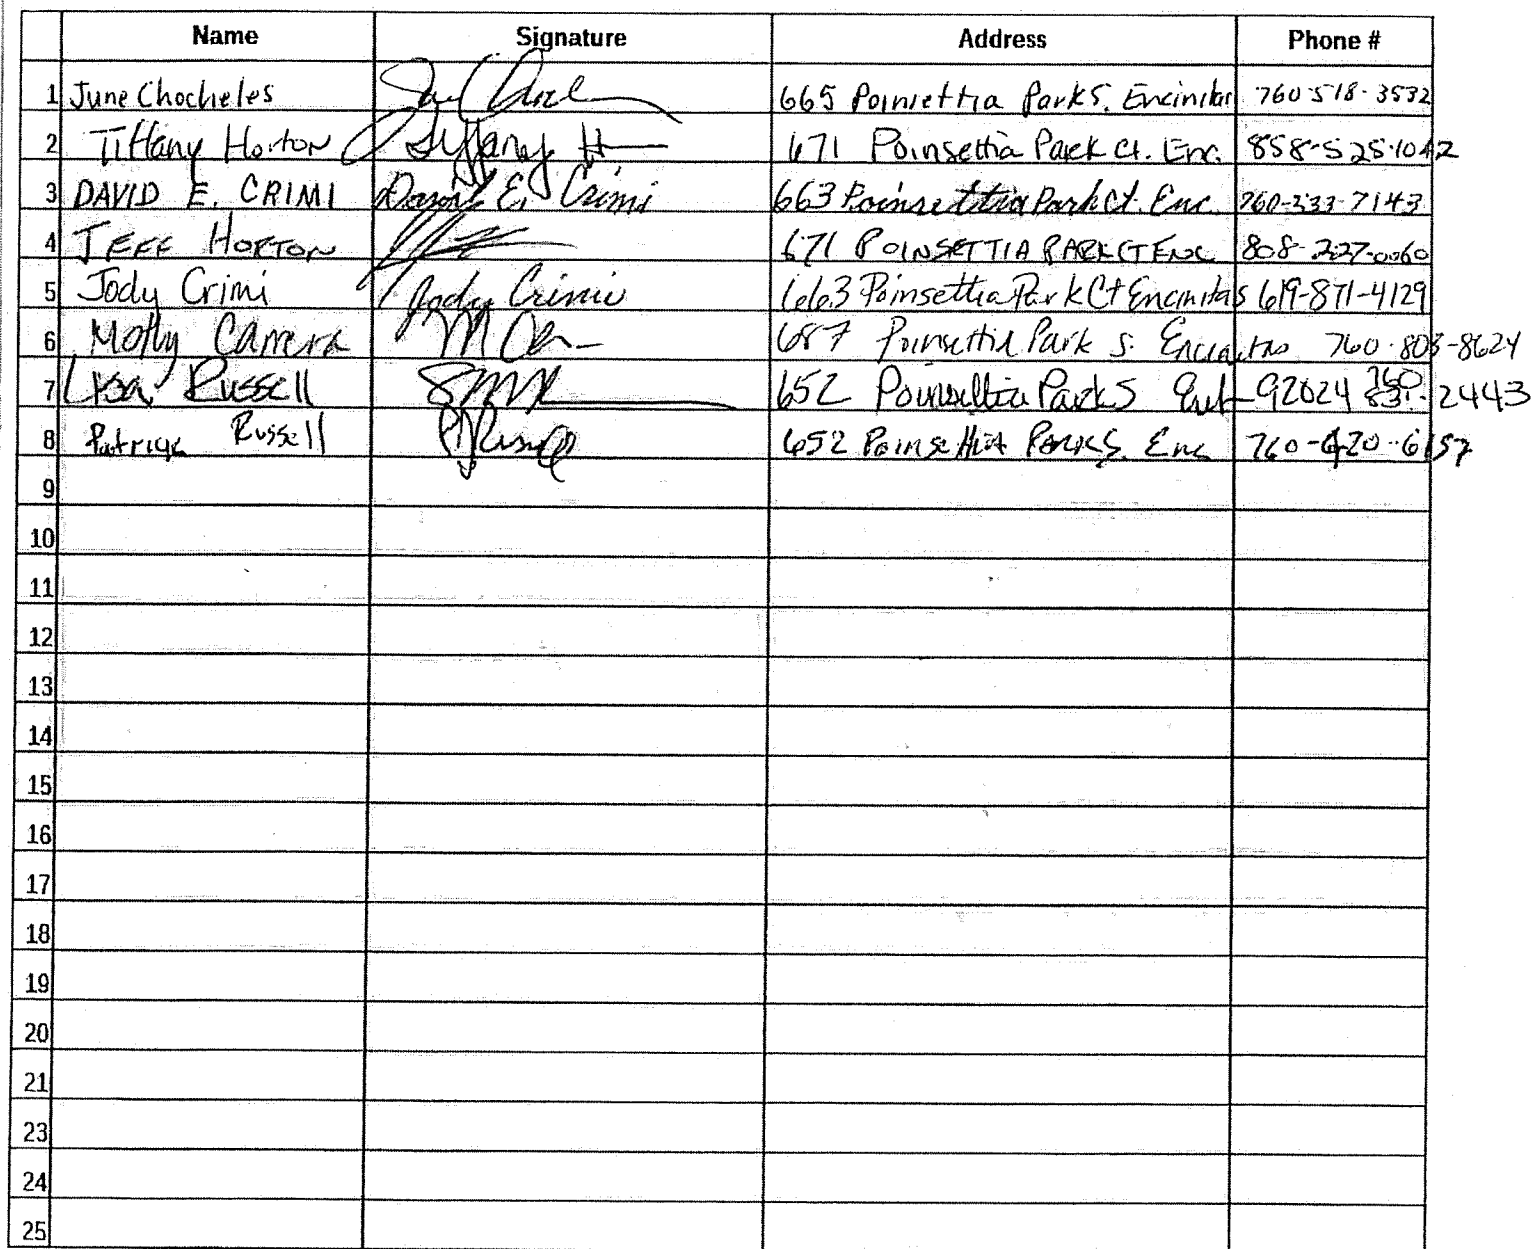 Name Signature Address Phone #
1 June Chocheles 665 Poinsettia Park S. Encinitas 760-518-3532
2 Tiffany Horton Tiffany H 671 Poinsettia Park Ct. Enc. 858-525-1042
3 DAVID E. CRIMI David E. Crimi 663 Poinsettia Park Ct. Enc. 760-333-7143
4 JEFF HORTON 671 POINSETTIA PARK CT ENC 808-227-0060
5 Jody Crimi Jody Crimi 663 Poinsettia Park Ct Encinitas 619-871-4129
6 Molly 687 Poinsettia Park S. Encinitas 760-803-8624
7 Lisa Russell 652 Poinsettia Park S 92024 760 2443
8 Patrick Russell 652 Poinsettia Park S. Enc 760-420-6157
9
10
11
12
13
14
15
16
17
18
19
20
21
23
24
25